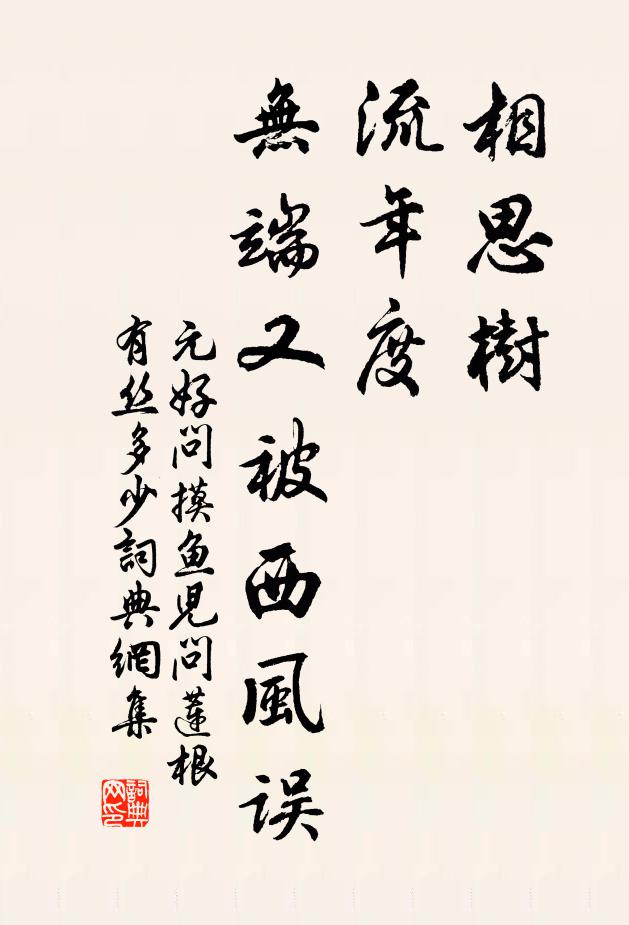 相思樹
流年度
無端又被西風误
元好问摸鱼児问蓮根
有丝多少詞典網集
詞典网印